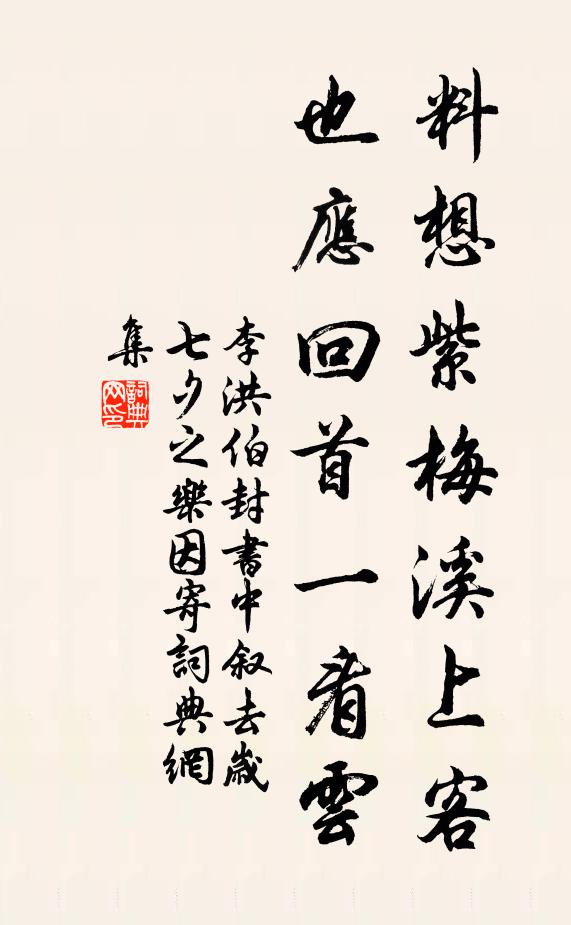 料想紫梅溪上客
也應回首一看雲
李洪伯封書中叙去歲
七夕之樂因寄詞典網
集
詞典
网印